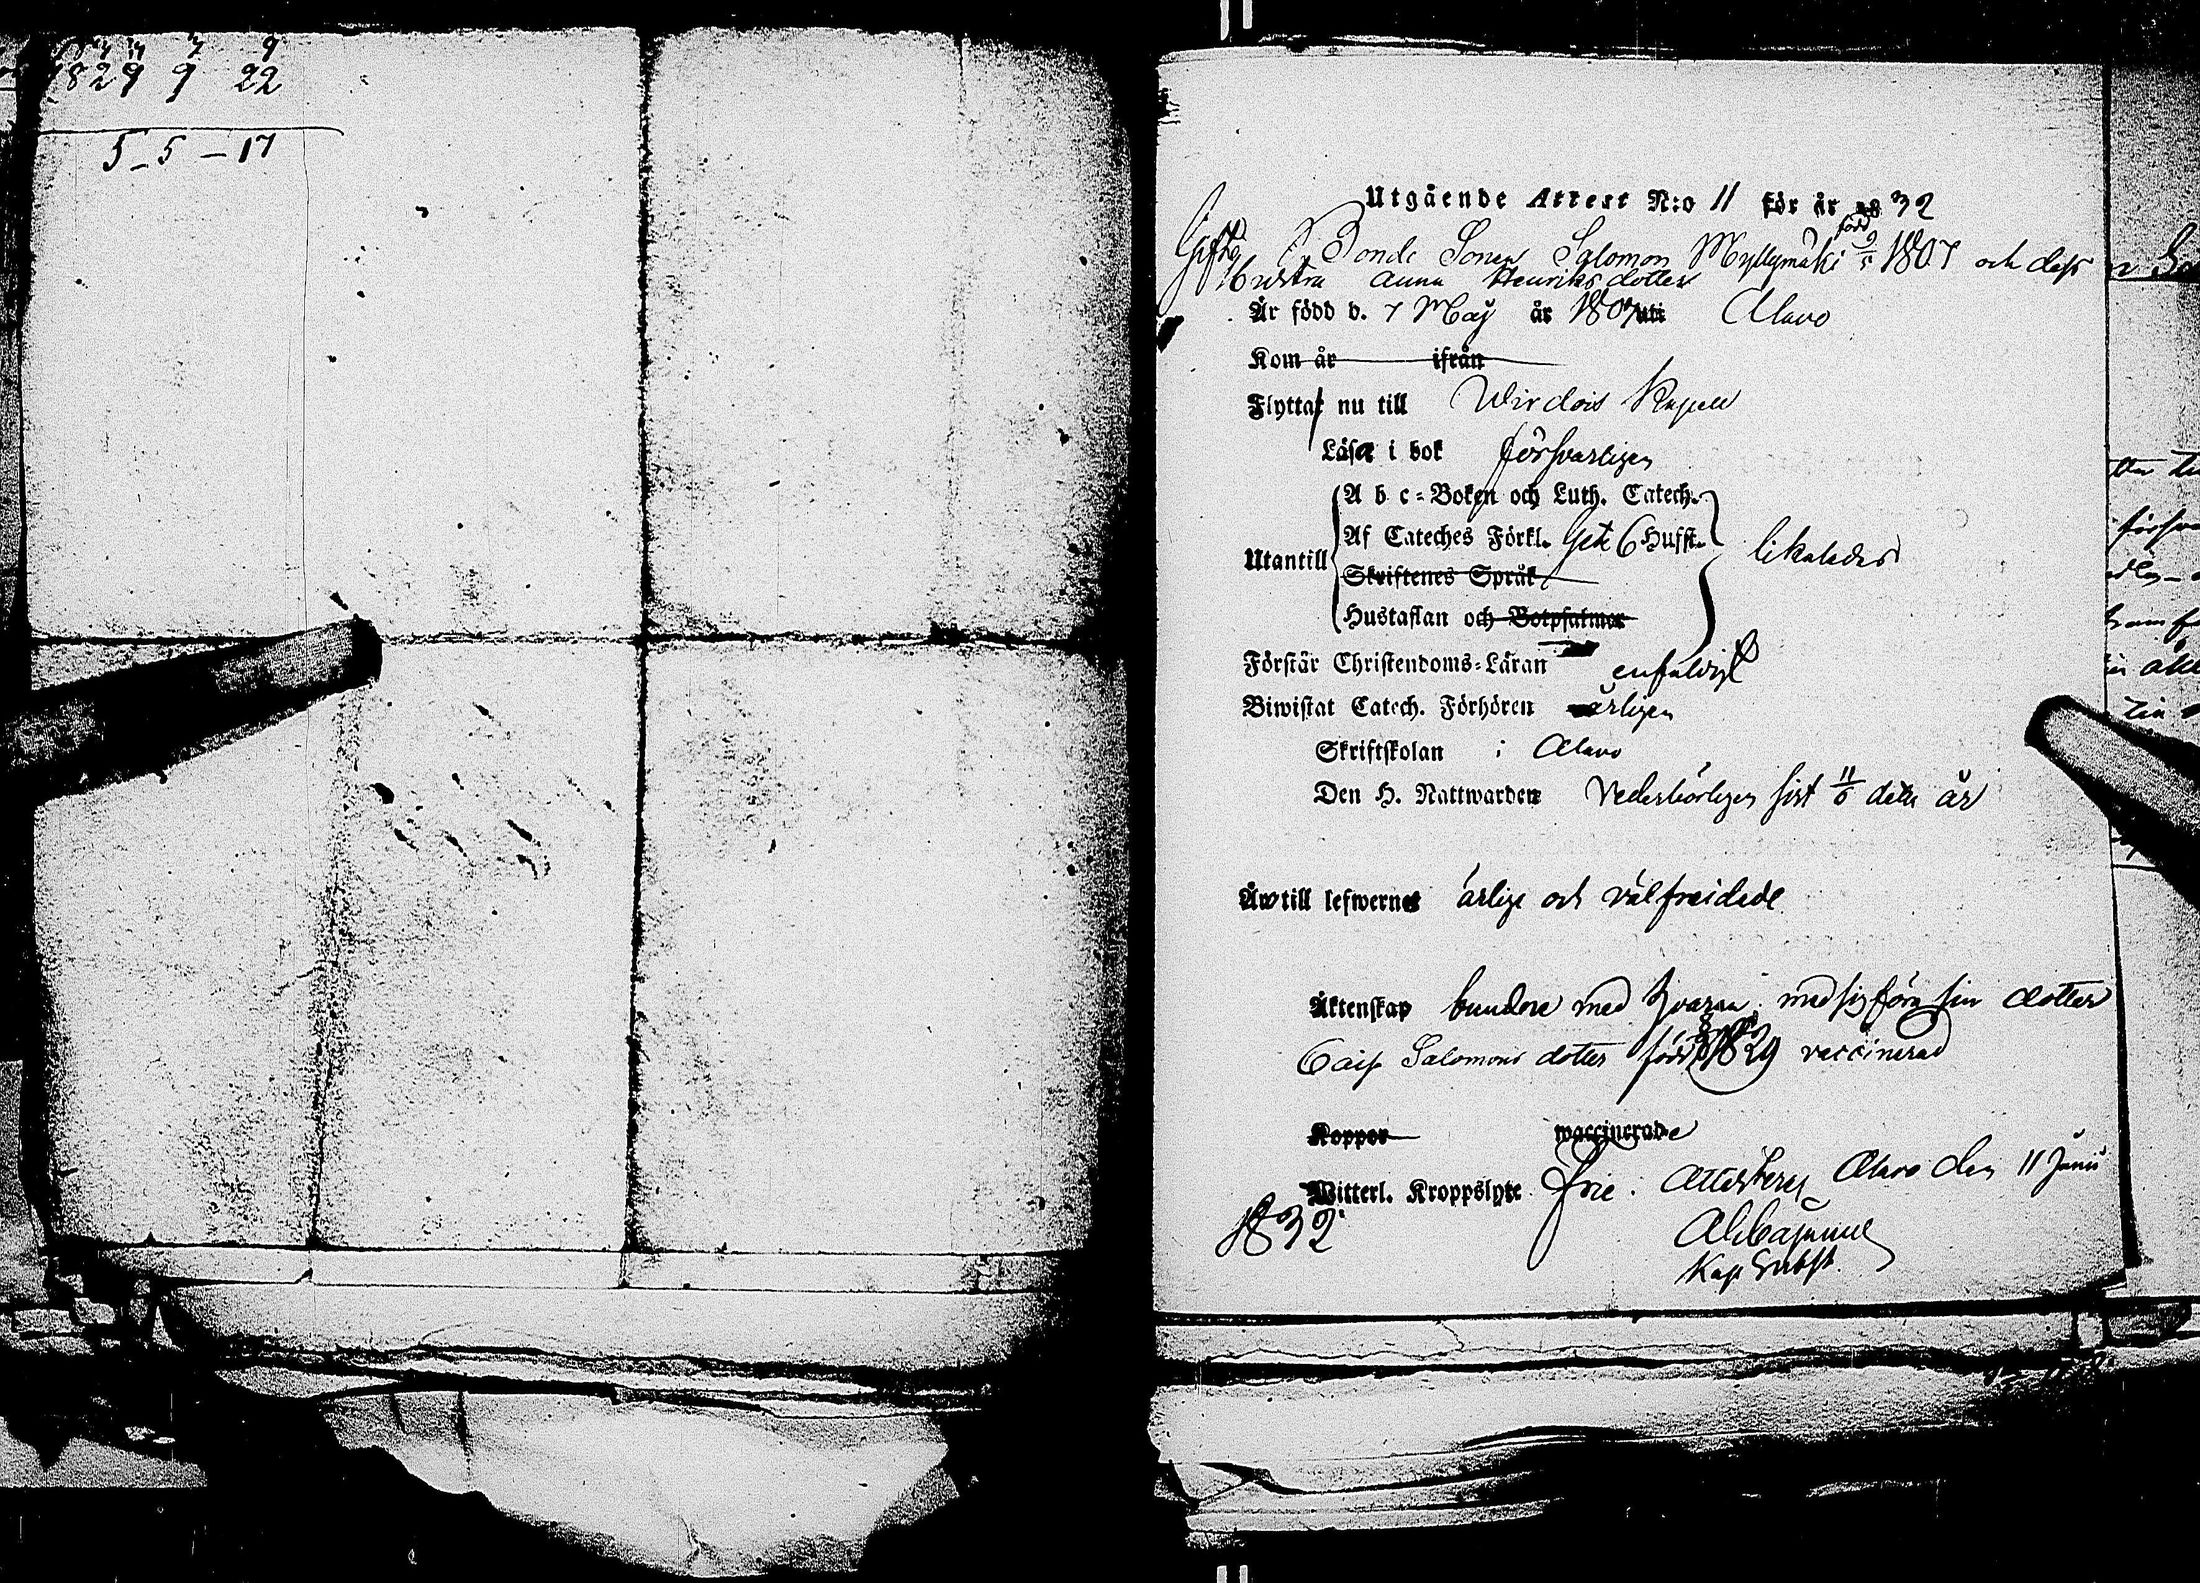 1829 9 22
5 - 5 - 17
Utgående Attest N:o 11 för år 1832
född
Gifte Bonde Sonen Salomon Myllymäki 9/5 1807 och dess
Hustru Anna Henriks dotter
Är född d. 7 Maj år 1807 uti Alavo
Kom år ifrån
Flytta nu till Wirdois Kapell
Läser i bok försvarligen
A b c-Boken och Luth. Catech.
Af Cateches Förkl. 6 Hufst.
Utantill likaledes
Skriftenes Språk
Hustaflan och Botpsalmer
Förstår Christendoms-Läran enfaldigt
Biwistat Catech. Förhören årligen
Skriftskolan i Alavo
Den H. Nattwarden Vederbörligen sist 11/6 detta år
Äro till lefwernet ärlige och välfreidade
Äktenskap bundne med hvaran; medsigföra sin dotter
Cajs Salomons dotter född 1829 vaccinerad
Koppor waccinerade
Witterl. Kroppslyte frie. Attesteras Alavo den 11 Junii
1832
Kap Subst.